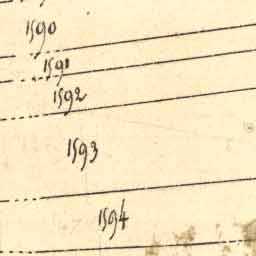 1590
1591
1592
1593
1594